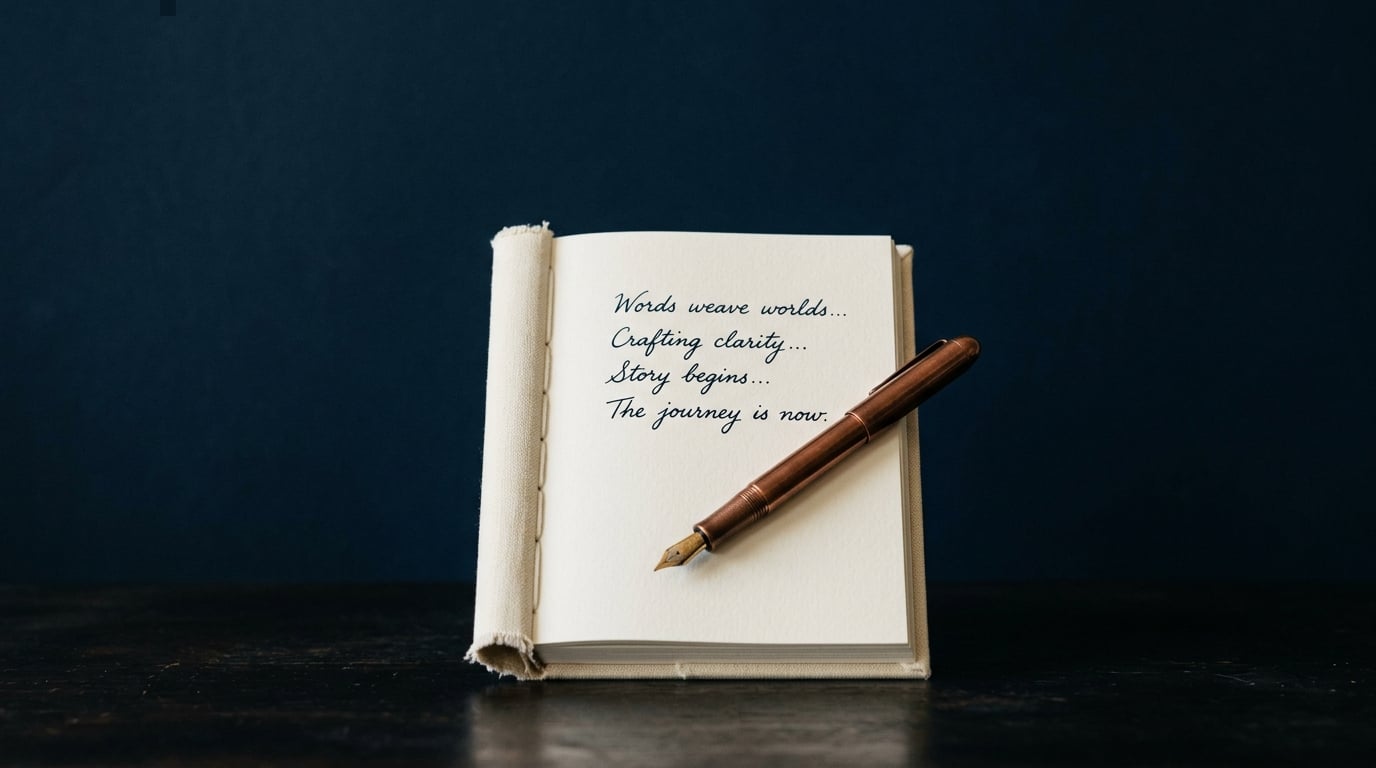 Words weave worlds...
Crafting clarity...
Story begins...
The journey is now.